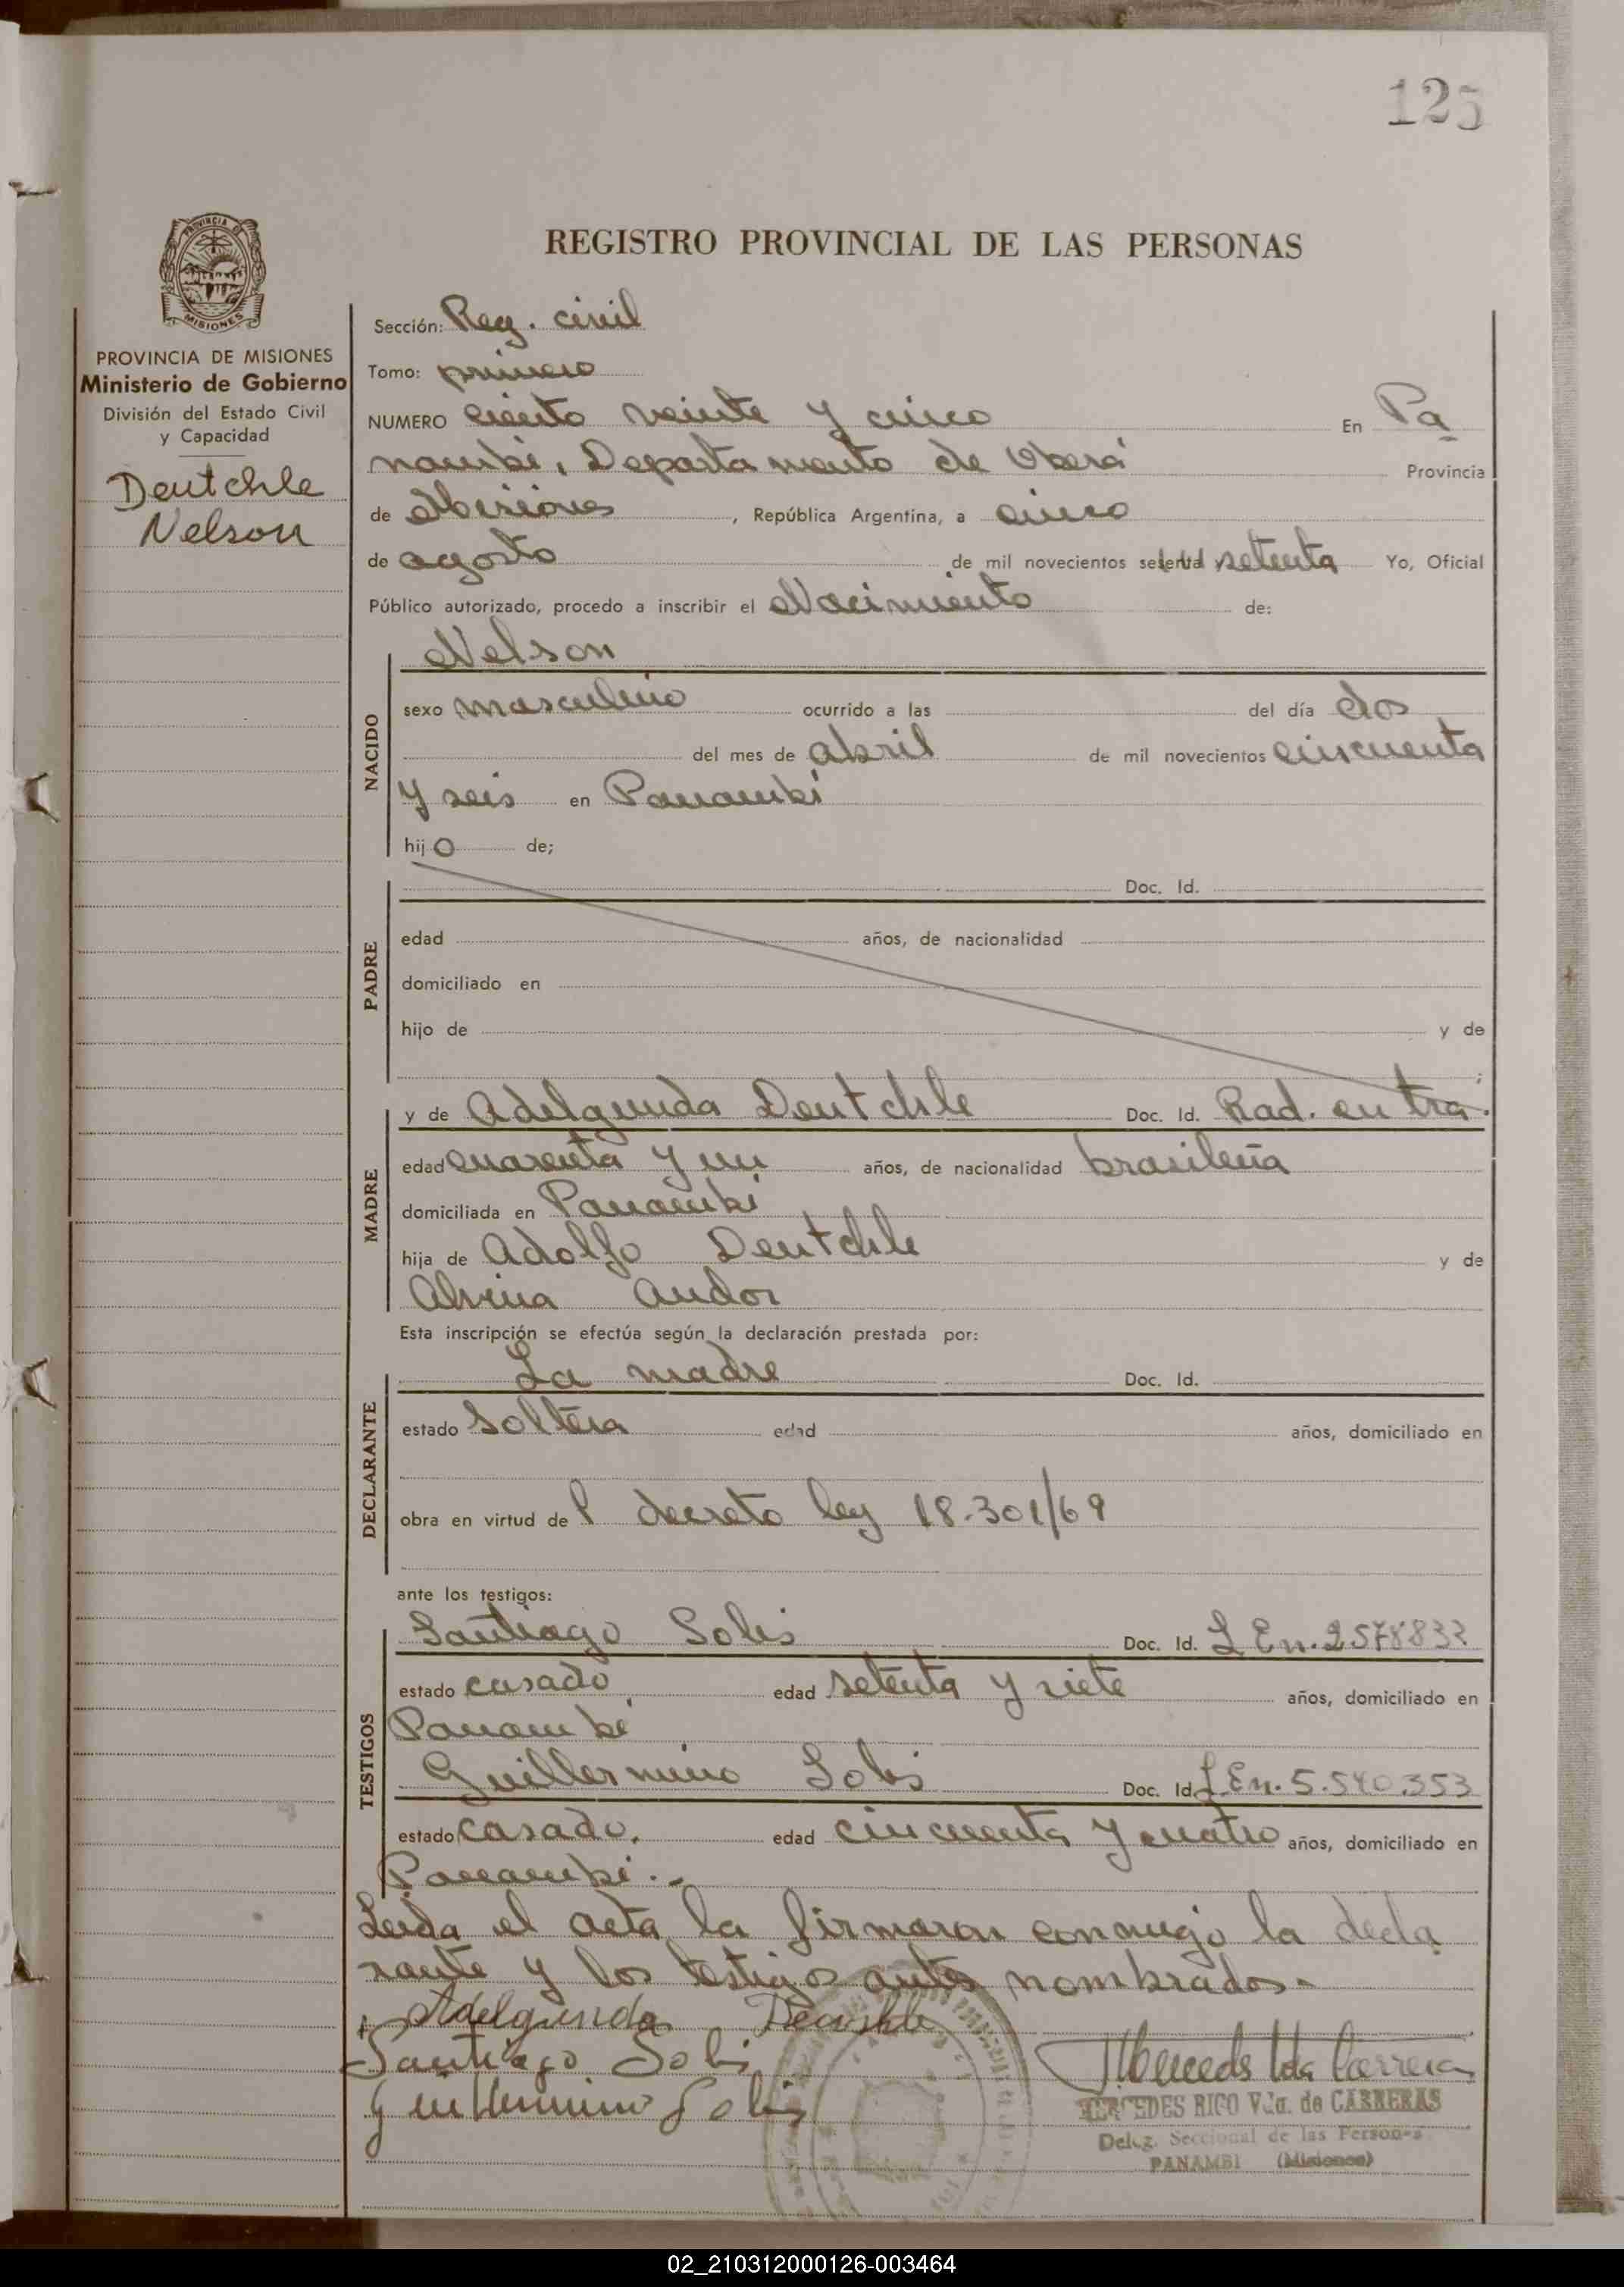 125
PROVINCIA DE
MISIONES
PROVINCIA DE MISIONES
Ministerio de Gobierno
División del Estado Civil
y Capacidad
Deutchle
Nelson
REGISTRO PROVINCIAL DE LAS PERSONAS
Sección: Reg. civil
Tomo: primero
NUMERO ciento veinte y cinco En Pa
nambí, Departamento de Oberá Provincia
de Misiones, República Argentina, a cinco
de agosto de mil novecientos setenta Yo, Oficial
Público autorizado, procedo a inscribir el Nacimiento de:
NACIDO
Nelson
sexo masculino ocurrido a las del día dos
del mes de abril de mil novecientos cincuenta
y seis en Panambí
hijo de;
PADRE
Doc. Id.
edad años, de nacionalidad
domiciliado en
hijo de y de
;
MADRE
y de Adelgunda Deutchle Doc. Id. Rad. en tra.
edad cuarenta y un años, de nacionalidad brasileña
domiciliada en Panambí
hija de Adolfo Deutchle y de
Alvina Andor
Esta inscripción se efectúa según la declaración prestada por:
DECLARANTE
La madre Doc. Id.
estado soltera edad años, domiciliado en
obra en virtud del decreto ley 18.301/69
ante los testigos:
TESTIGOS
Santiago Solis Doc. Id. L En. 2578832
estado casado edad setenta y siete años, domiciliado en
Panambí
Guillermino Solis Doc. Id. L En. 5.540.353
estado casado. edad cincuenta y cuatro años, domiciliado en
Panambí.-
Leida el acta la firmaron conmigo la decla
rante y los testigos antes nombrados.-
+ Adelgunda
Santiago Solis
Guillermino Solis
MERCEDES RICO Vda. de CARRERAS
Deleg. Seccional de las Personas
PANAMBI (Misiones)
02_210312000126-003464